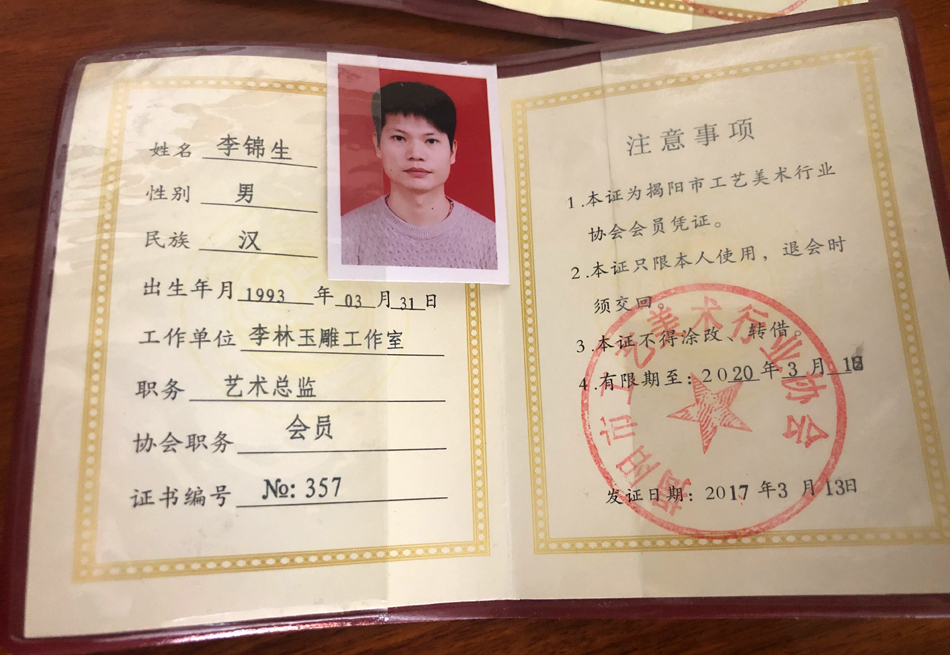 姓名 李锦生
性别 男
民族 汉
出生年月 1993 年 03 月 31 日
工作单位 李林玉雕工作室
职务 艺术总监
协会职务 会员
证书编号 №: 357
注意事项
1.本证为揭阳市工艺美术行业
协会会员凭证。
2.本证只限本人使用，退会时
须交回。
3.本证不得涂改、转借。
4.有限期至：2020 年 3 月
发证日期：2017 年 3 月 13 日
揭阳市工艺美术行业协会